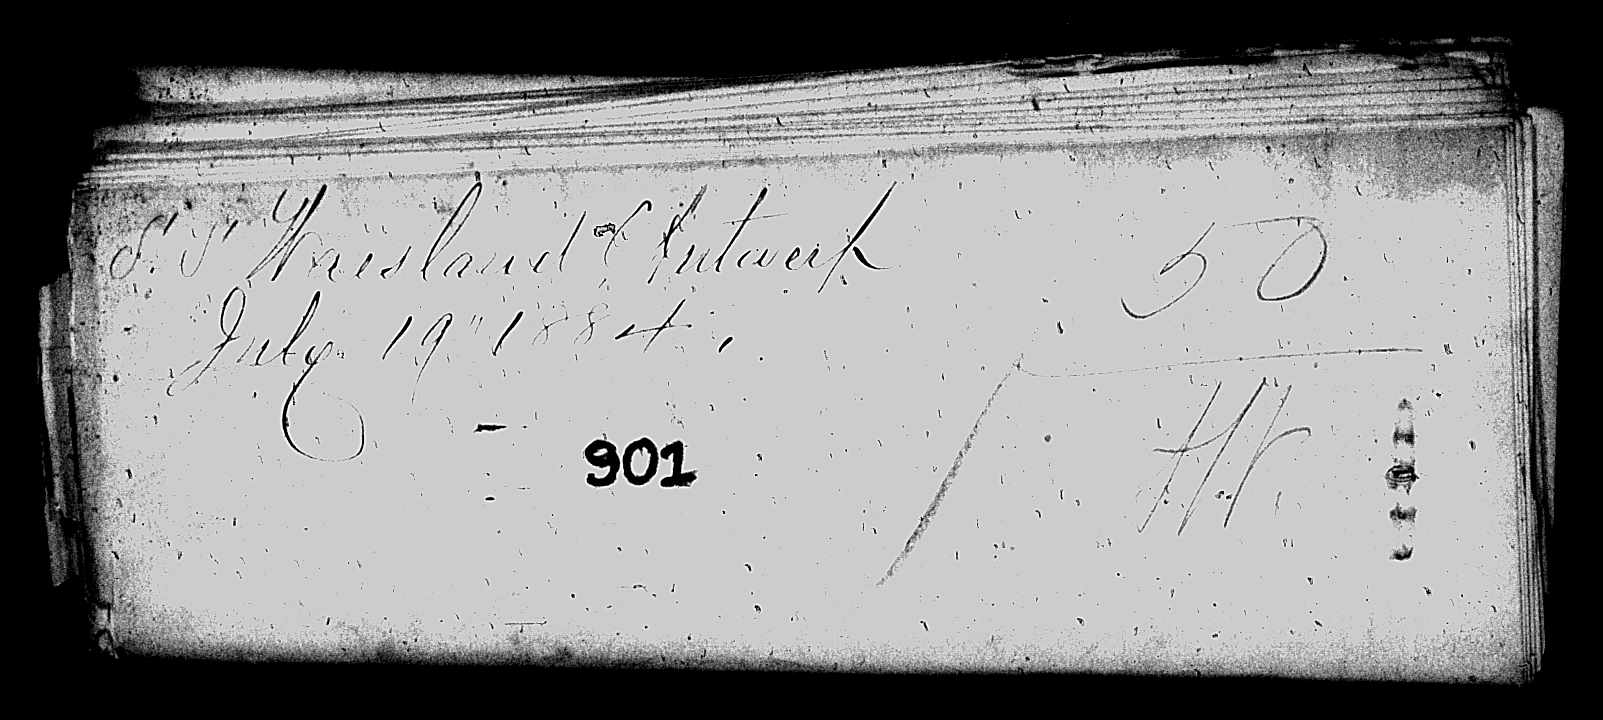 S. S. Waesland Antwerp
July 19" 1884.
50
901